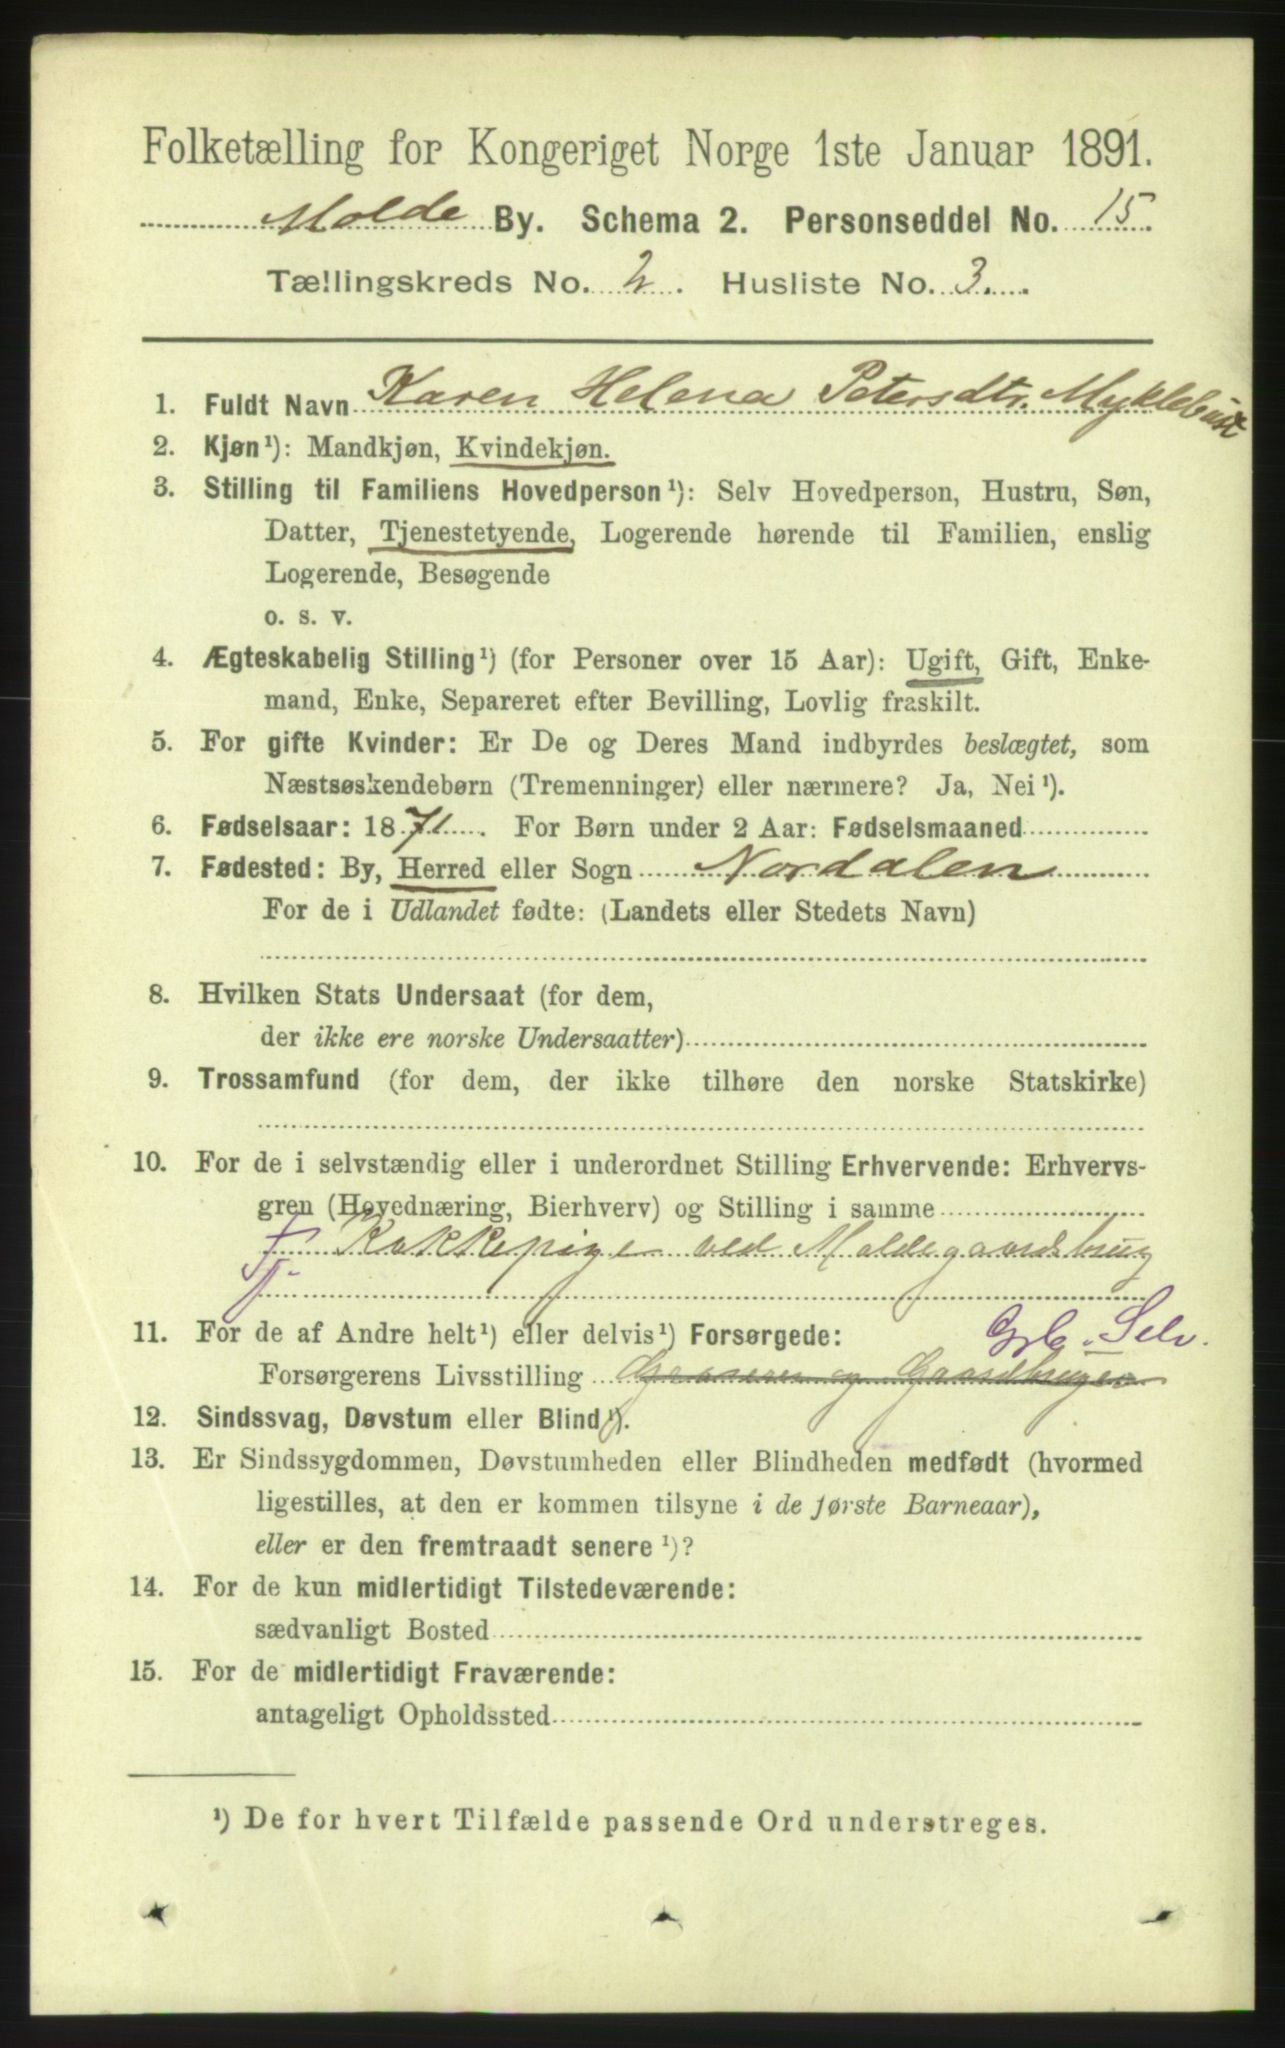 Folketælling for Kongeriget Norge 1ste Januar 1891.
Molde By. Schema 2. Personseddel No. 15.
Tællingskreds No. 2. Husliste No. 3.
1. Fuldt Navn Karen Helena Petersdtr. Myklebust
2. Kjøn¹): Mandkjøn, Kvindekjøn.
3. Stilling til Familiens Hovedperson¹): Selv Hovedperson, Hustru, Søn,
Datter, Tjenestetyende, Logerende hørende til Familien, enslig
Logerende, Besøgende
o. s. v.
4. Ægteskabelig Stilling¹) (for Personer over 15 Aar): Ugift, Gift, Enke-
mand, Enke, Separeret efter Bevilling, Lovlig fraskilt.
5. For gifte Kvinder: Er De og Deres Mand indbyrdes beslægtet, som
Næstsøskendebørn (Tremenninger) eller nærmere? Ja, Nei¹).
6. Fødselsaar: 1871. For Børn under 2 Aar: Fødselsmaaned
7. Fødested: By, Herred eller Sogn Nordalen
For de i Udlandet fødte: (Landets eller Stedets Navn)
8. Hvilken Stats Undersaat (for dem,
der ikke ere norske Undersaatter)
9. Trossamfund (for dem, der ikke tilhøre den norske Statskirke)
10. For de i selvstændig eller i underordnet Stilling Erhvervende: Erhvervs-
gren (Hovednæring, Bierhverv) og Stilling i samme
Kokkepige ved Moldegaardsbrug
11. For de af Andre helt¹) eller delvis¹) Forsørgede: Grb. Selv.
Forsørgerens Livsstilling og Gaardbruger
12. Sindssvag, Døvstum eller Blind¹).
13. Er Sindssygdommen, Døvstumheden eller Blindheden medfødt (hvormed
ligestilles, at den er kommen tilsyne i de første Barneaar),
eller er den fremtraadt senere¹)?
14. For de kun midlertidigt Tilstedeværende:
sædvanligt Bosted
15. For de midlertidigt Fraværende:
antageligt Opholdssted
¹) De for hvert Tilfælde passende Ord understreges.